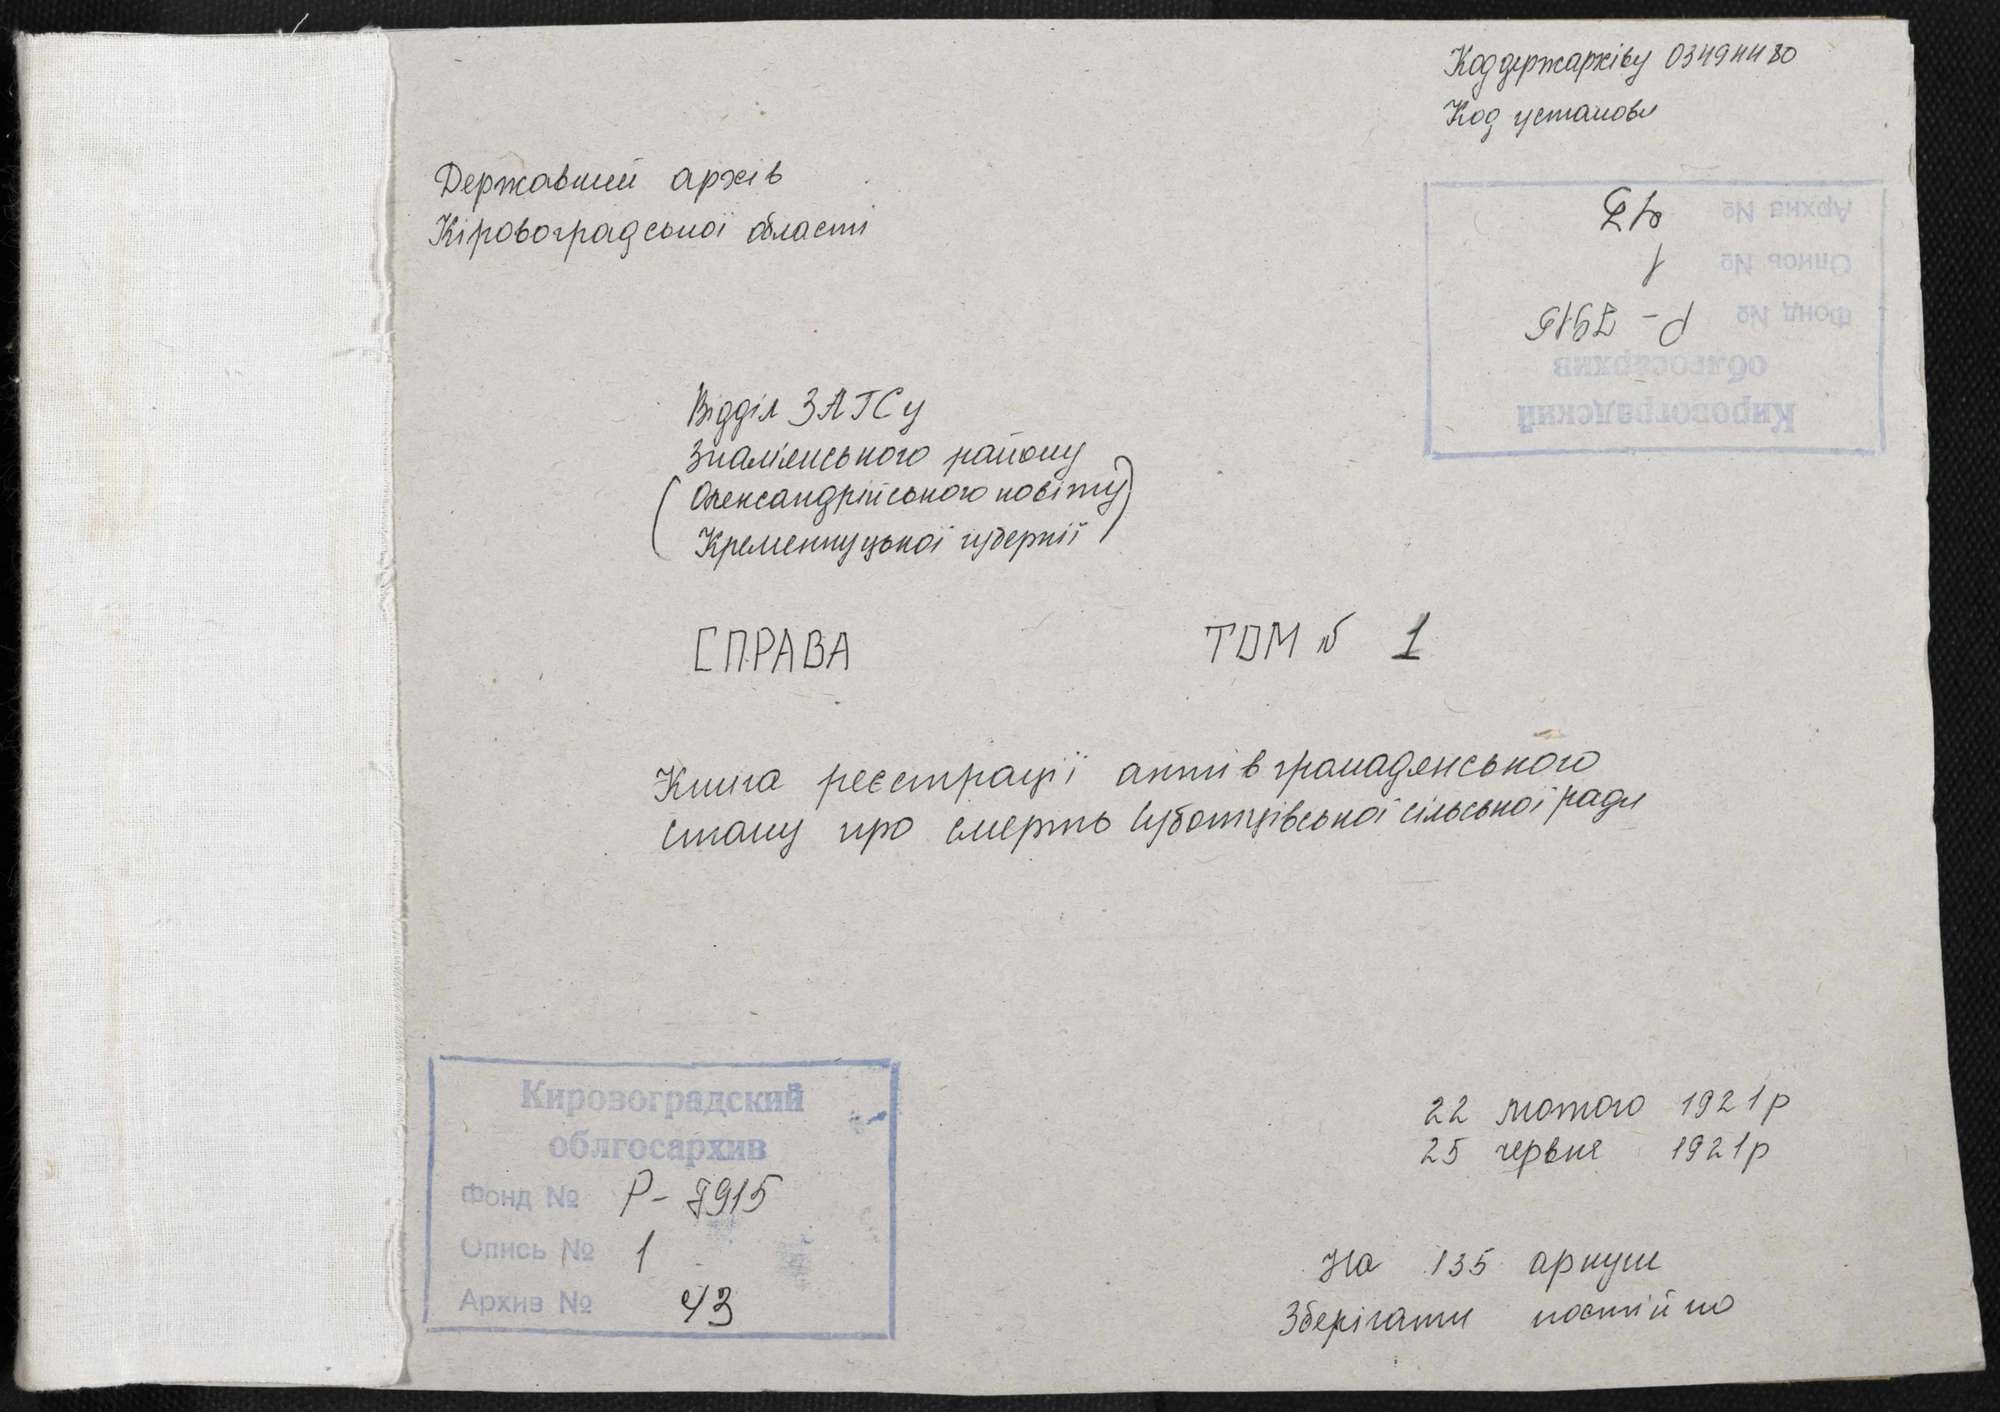 Код держархіву 03494480
Код установи
Державний архів
Кіровоградської області
Архив № 43
Опись № 1
Фонд № Р-7915
облгосархив
Кировоградский
Відділ ЗАГСу
Знам'янського району
(Олександрійського повіту
Кременчуцької губернії)
СПРАВА ТОМ № 1
Книга реєстрації актів громадянського
стану про смерть Суботцівської сільської ради
Кировоградский
облгосархив
Фонд № Р-7915
Опись № 1
Архив № 43
22 лютого 1921р
25 червня 1921р
На 135 аркуш
Зберігати постійно